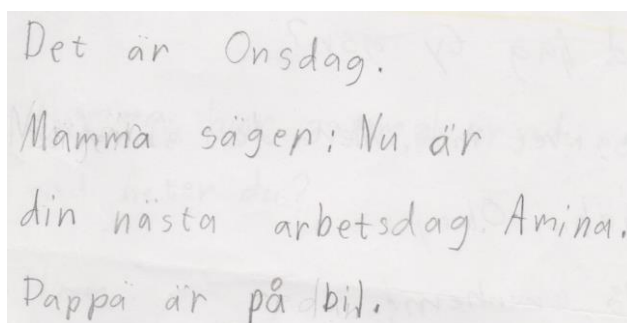 Det är Onsdag.
Mamma säger: Nu är
din nästa arbetsdag Amina.
Pappa är på bil.